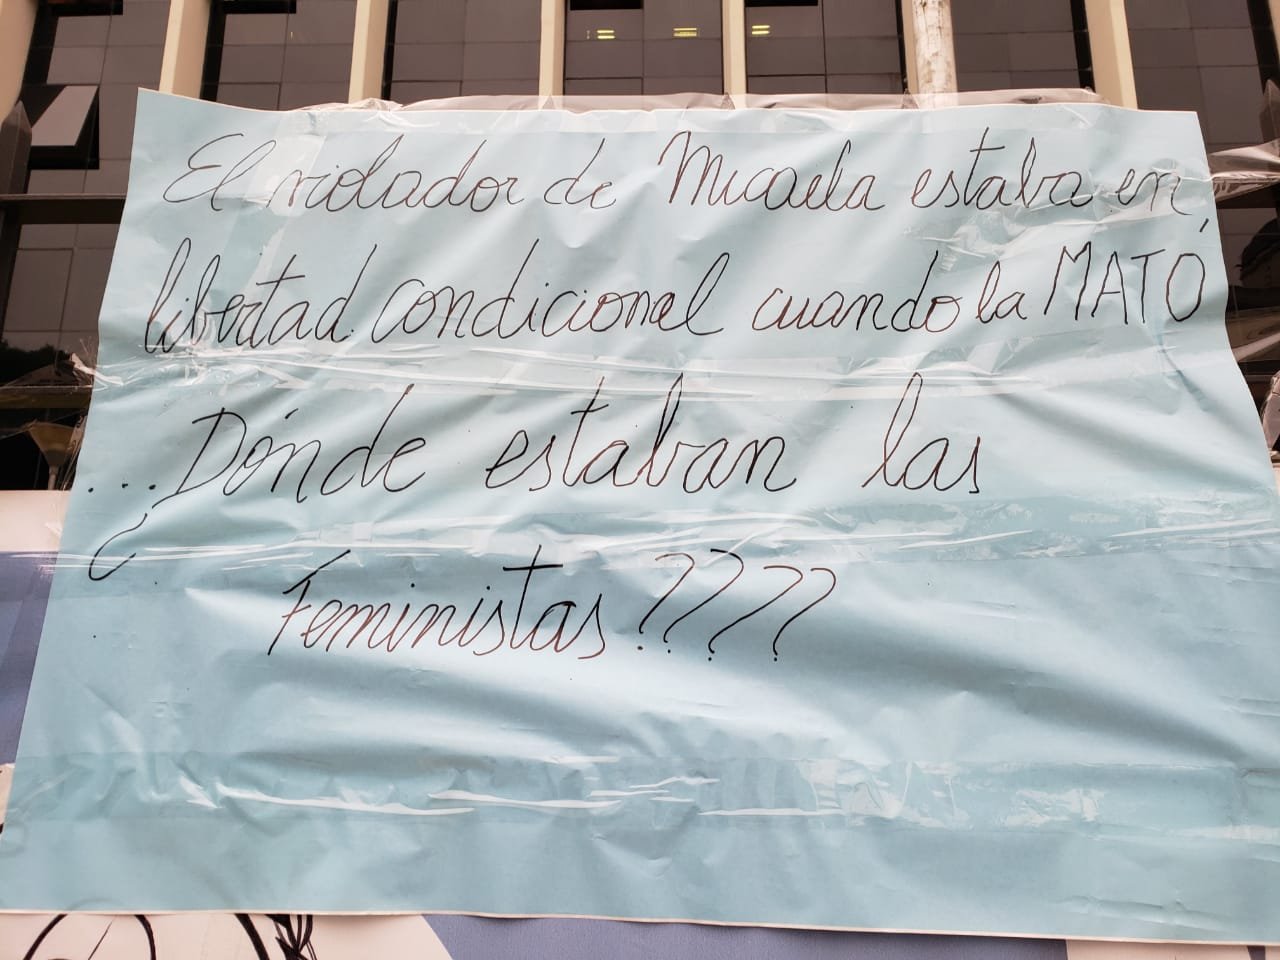 El violador de Micaela estaba en
libertad condicional cuando la MATÓ
...¿Dónde estaban las
Feministas????